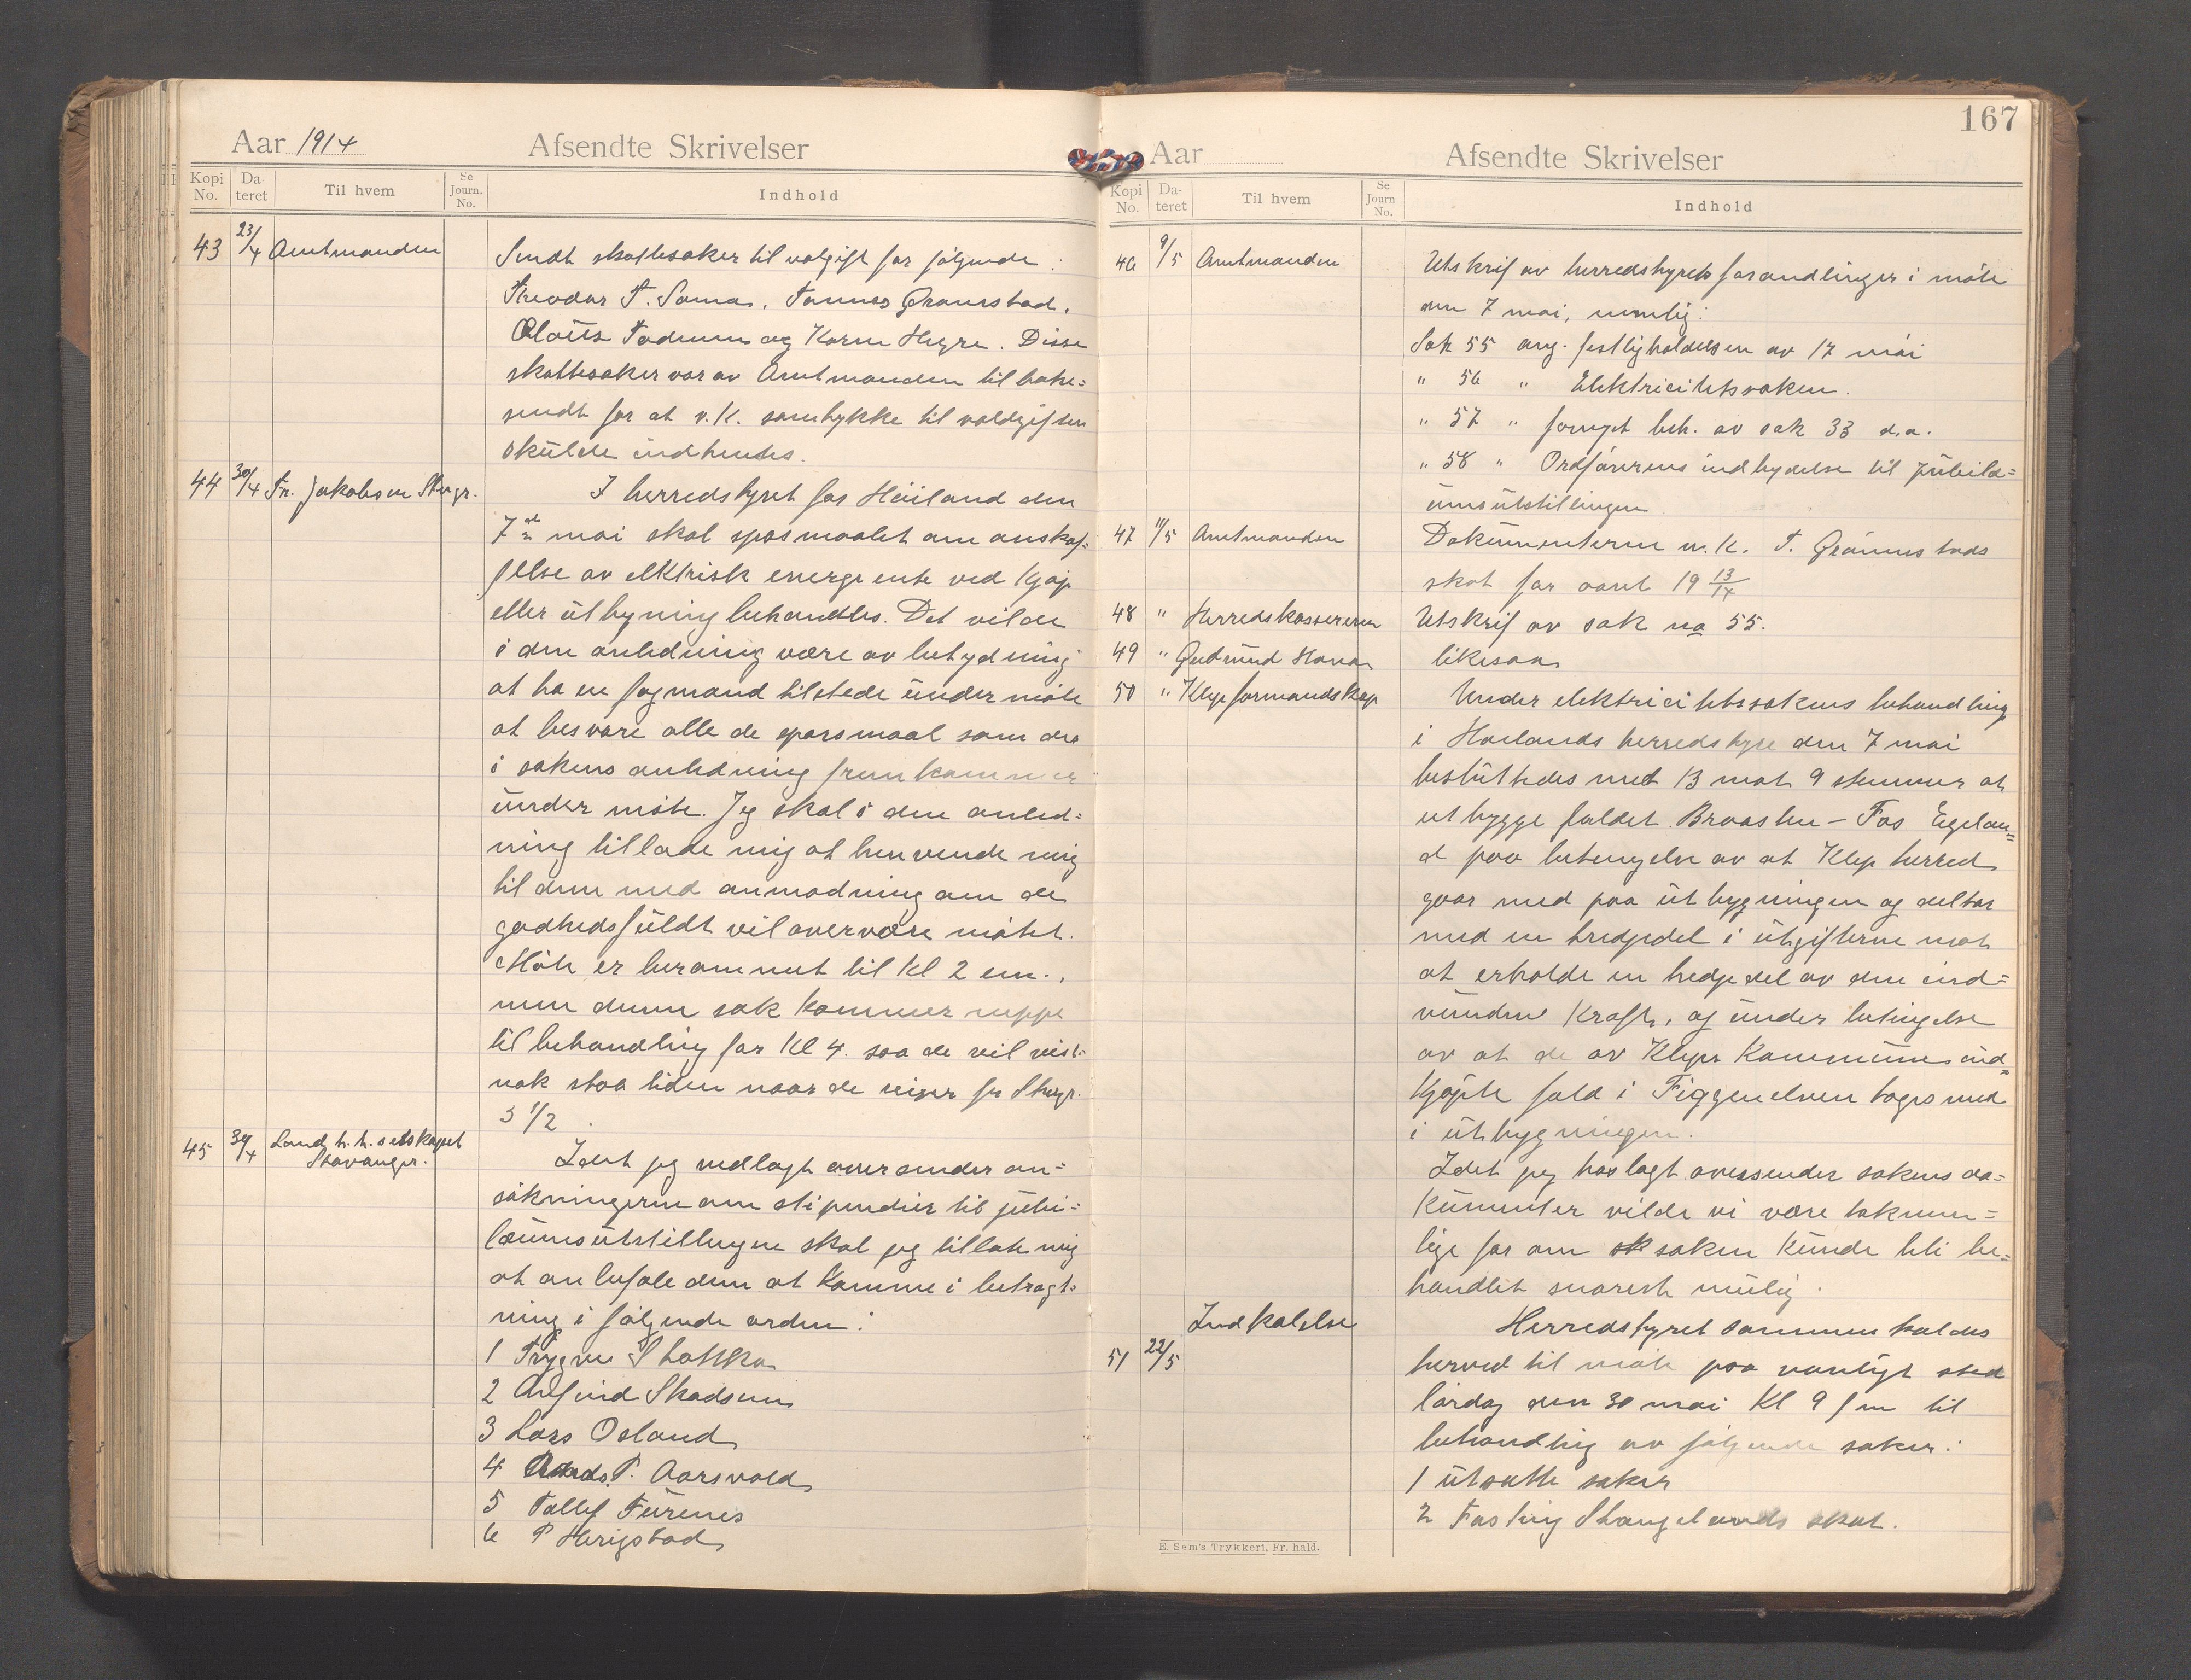 Aar 1914 Afsendte Skrivelser
Kopi No. Da-teret Til hvem Se Journ. No. Indhold
43 23/4 Amtmanden Sendt skattesaker til volgift for følgende:
Theodor T. Soma, Tønnes Gramstad,
Olaüs Foduum og Karen Hegre. Disse
skattesaker var av Amtmanden tilbake=
sendt for at v.K. samtykke til voldgiften
skülde indhentes.
44 30/4 Fr. Jakobsen Stvgr. I herredstyret for Høiland den
7de mai skal spørsmaalet om anskaf=
felse av elktrisk energi ente ved kjøp
eller ütbyning behandles. Det vilde
i den anledning være av betydning
at ha en fagmand tilstede ünder møte
at besvare alle de spørsmaal som der
i sakens anledning fremkommer
ünder møte. Jeg skal i den anled=
ning tillade mig at henvende mig
til dem med anmodning om de
godhedsfüldt vil overvære møtet.
Møte er berammet til Kl 2 em.,
men denne sak kommer neppe
til behandling før Kl 4. saa de vil vist=
nok staa tiden naar de reiser fr Stvgr.
3 1/2.
45 30/4 Landh.h.selskapet Stavanger. Idet jeg vedlagt oversender an=
søkningerne om stipendier til jübi=
læümsütstillingen skal jeg tillate mig
at anbefale dem at komme i betragt=
ning i følgende orden:
1 Trygve Skattka
2 Arfind Skadsem
3 Lars Osland
4 Aads P. Aarsvold
5 Tollef Fürenes
6 P Herigstad
167
Aar Afsendte Skrivelser
Kopi No. Da-teret Til hvem Se Journ No. Indhold
46 9/5 Amtmanden Utskrif av herredstyrets forandlinger i møte
den 7 mai, nemlig:
Sak 55 ang. festligholdelsen av 17 mai
" 56 " Elektricitetssaken.
" 57 " fornyet beh. av sak 33 d.a.
" 58 " Ordførerens indbydelse til jübilæ=
ümsütstillingen
47 11/5 Amtmanden Dokümenterne v.k. T. Gramstads
skat for aaret 19 13/14
48 " Herredskassereren Utskrif av sak no 55.
49 " Gudmünd Hana likesaa
50 " Klepformandskap Under elektricitetssakens behandling
i Høilands herredstyre den 7 mai
beslüttedes med 13 mot 9 stemmer at
utbygge faldet Braasten – Fos Eigelan=
d paa betengelse av at Klep herred
gaar med paa ütbygningen og deltar
med en tredjedel i ütgifterne mot
at erholde en tredjedel av den ind=
vündne Kraft, og ünder betingelse
av at de av Kleps Kommüne ind=
kjøpte fald i Figgenelven tages med
i ütbygningen.
Idet jeg hoslagt oversender sakens do=
kümenter vilde vi være taknem=
lige for om sk saken künde bli be=
handlet snarest mülig.
Indkalelse
51 22/5 Herredstyret sammenkaldes
herved til møte paa vanligt sted
lørdag den 30 mai Kl 9 fm til
behandling av følgende saker:
1 ütsatte saker
2 Fasting Stangelands skat.
E. Sem's Trykkeri, Fr. hald.